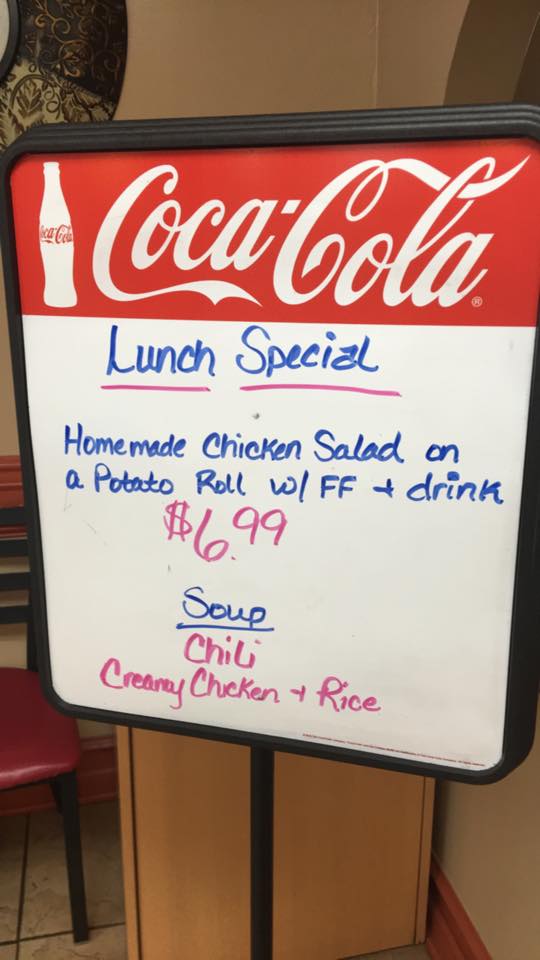 Coca-Cola
Coca-Cola ®
Lunch Special
Homemade Chicken Salad on
a Potato Roll w/ FF + drink
$6.99
Soup
Chili
Creamy Chicken + Rice